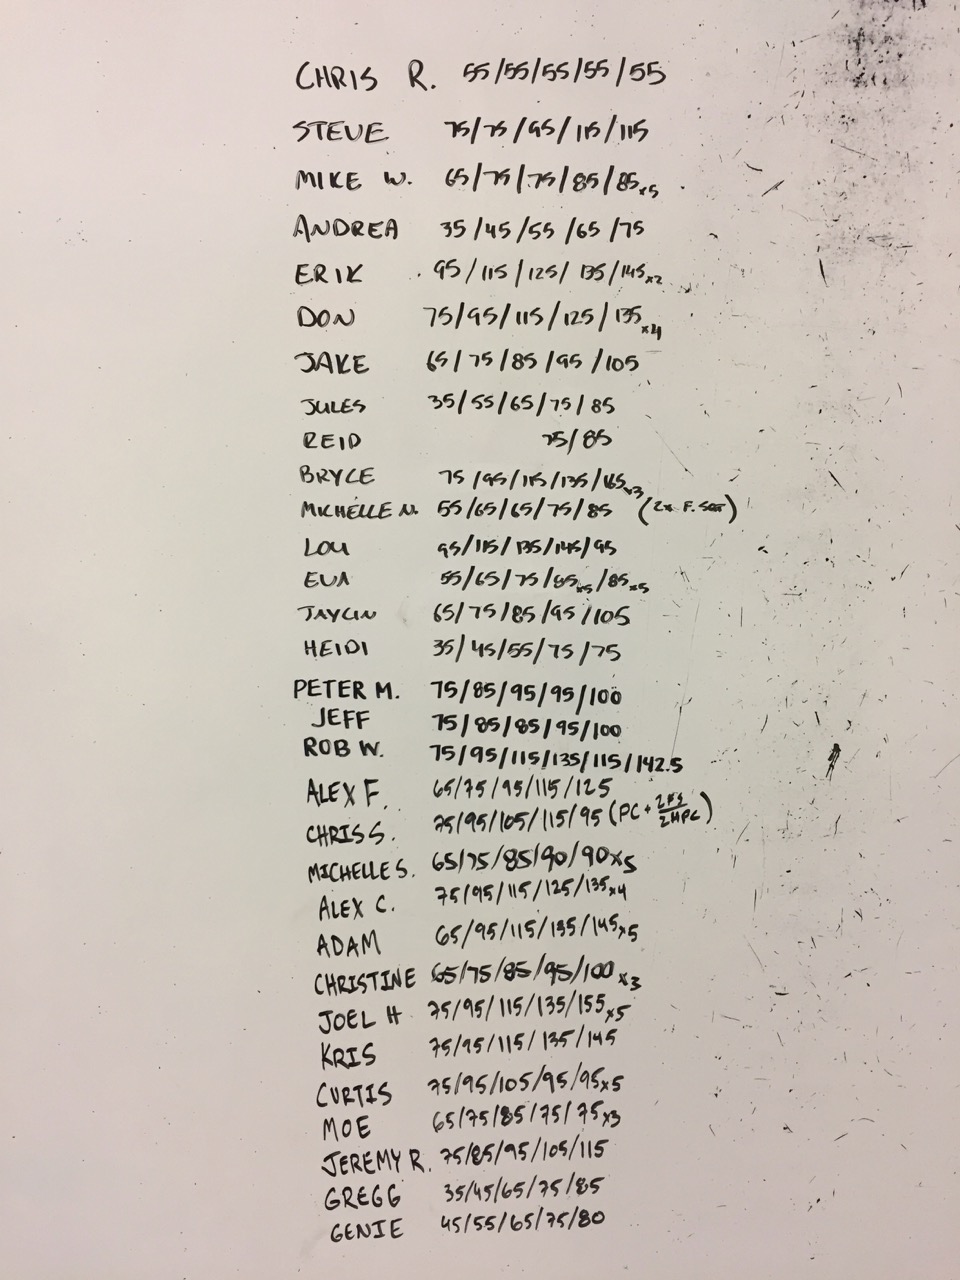 CHRIS R. 55/55/55/55/55
STEVE 75/75/95/115/115
MIKE W. 65/75/75/85/85x5
ANDREA 35/45/55/65/75
ERIK 95/115/125/135/145x2
DON 75/95/115/125/135x4
JAKE 65/75/85/95/105
JULES 35/55/65/75/85
REID 75/85
BRYCE 75/95/115/135/165x3
MICHELLE N. 55/65/65/75/85 (2x F.SQT)
LOU 95/115/135/145/95
EVA 55/65/75/85x5/85x5
JAYLIN 65/75/85/95/105
HEIDI 35/45/55/75/75
PETER M. 75/85/95/95/100
JEFF 75/85/85/95/100
ROB W. 75/95/115/135/115/142.5
ALEX F. 65/75/95/115/125
CHRIS S. 75/95/105/115/95 (PC + 2FS/2HPC)
MICHELLE S. 65/75/85/90/90x5
ALEX C. 75/95/115/125/135x4
ADAM 65/95/115/135/145x5
CHRISTINE 65/75/85/95/100x3
JOEL H 75/95/115/135/155x5
KRIS 75/95/115/135/145
CURTIS 75/95/105/95/95x5
MOE 65/75/85/75/75x3
JEREMY R. 75/85/95/105/115
GREGG 35/45/65/75/85
GENIE 45/55/65/75/80